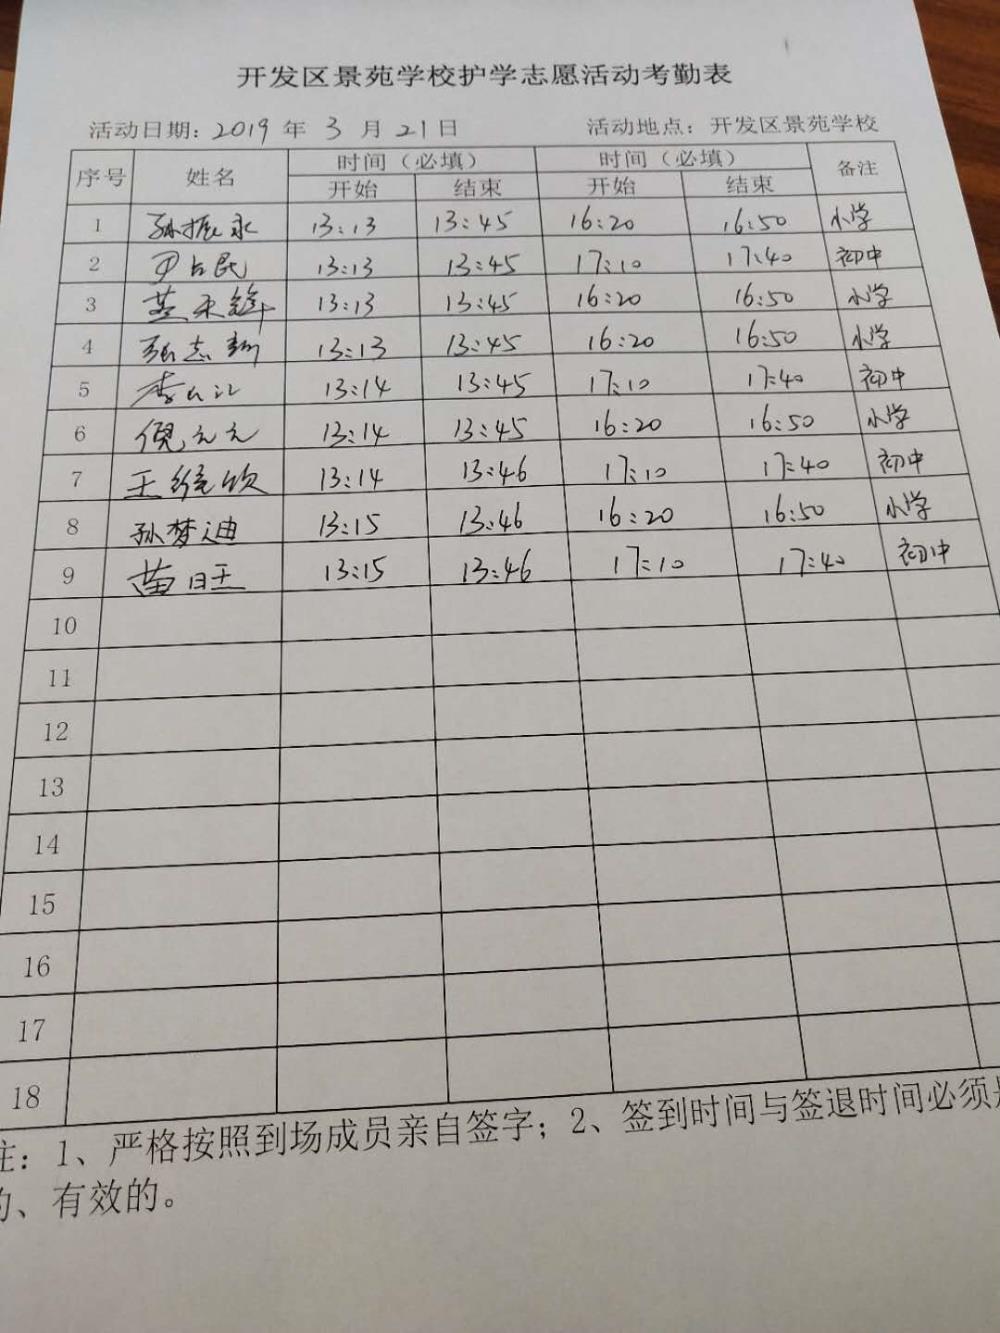 开发区景苑学校护学志愿活动考勤表
活动日期: 2019 年 3 月 21 日 活动地点: 开发区景苑学校
序号 姓名 时间（必填） 时间（必填） 备注
开始 结束 开始 结束
1 孙振永 13:13 13:45 16:20 16:50 小学
2 尹占民 13:13 13:45 17:10 17:40 初中
3 13:13 13:45 16:20 16:50 小学
4 张志 13:13 13:45 16:20 16:50 小学
5 李 13:14 13:45 17:10 17:40 初中
6 倪元元 13:14 13:45 16:20 16:50 小学
7 王维欣 13:14 13:46 17:10 17:40 初中
8 孙梦迪 13:15 13:46 16:20 16:50 小学
9 苗旺 13:15 13:46 17:10 17:40 初中
10
11
12
13
14
15
16
17
18
注: 1、严格按照到场成员亲自签字; 2、签到时间与签退时间必须是
的、有效的。